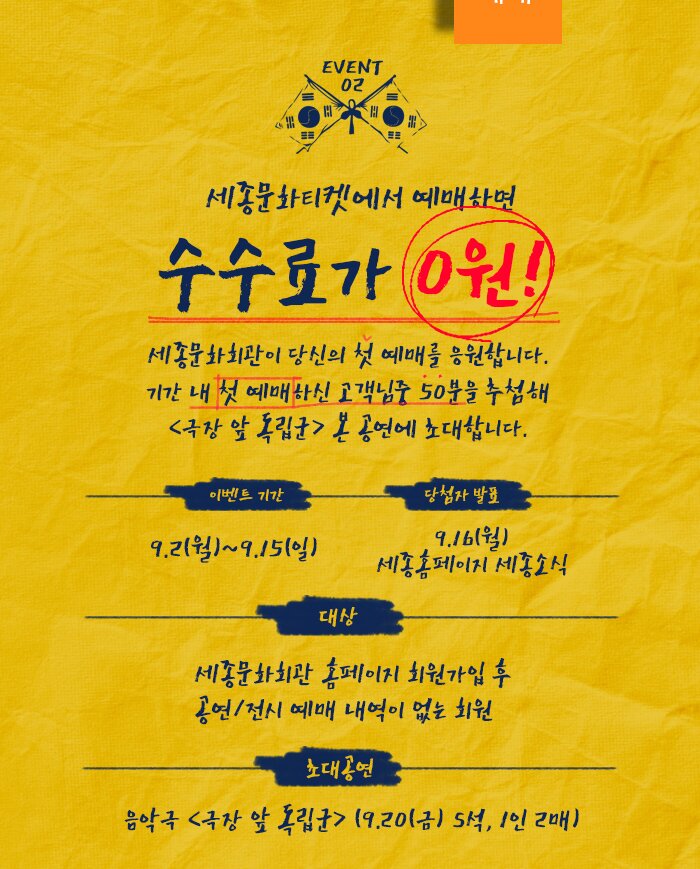 EVENT
02
세종문화티켓에서 예매하면
수수료가 0원!
세종문화회관이 당신의 첫 예매를 응원합니다.
기간 내 첫 예매하신 고객님중 50분을 추첨해
<극장 앞 독립군> 본 공연에 초대합니다.
이벤트 기간
당첨자 발표
9.2(월)~9.15(일)
9.16(월)
세종홈페이지 세종소식
대상
세종문화회관 홈페이지 회원가입 후
공연/전시 예매 내역이 없는 회원
초대공연
음악극 <극장 앞 독립군> (9.20(금) 5석, 1인 2매)